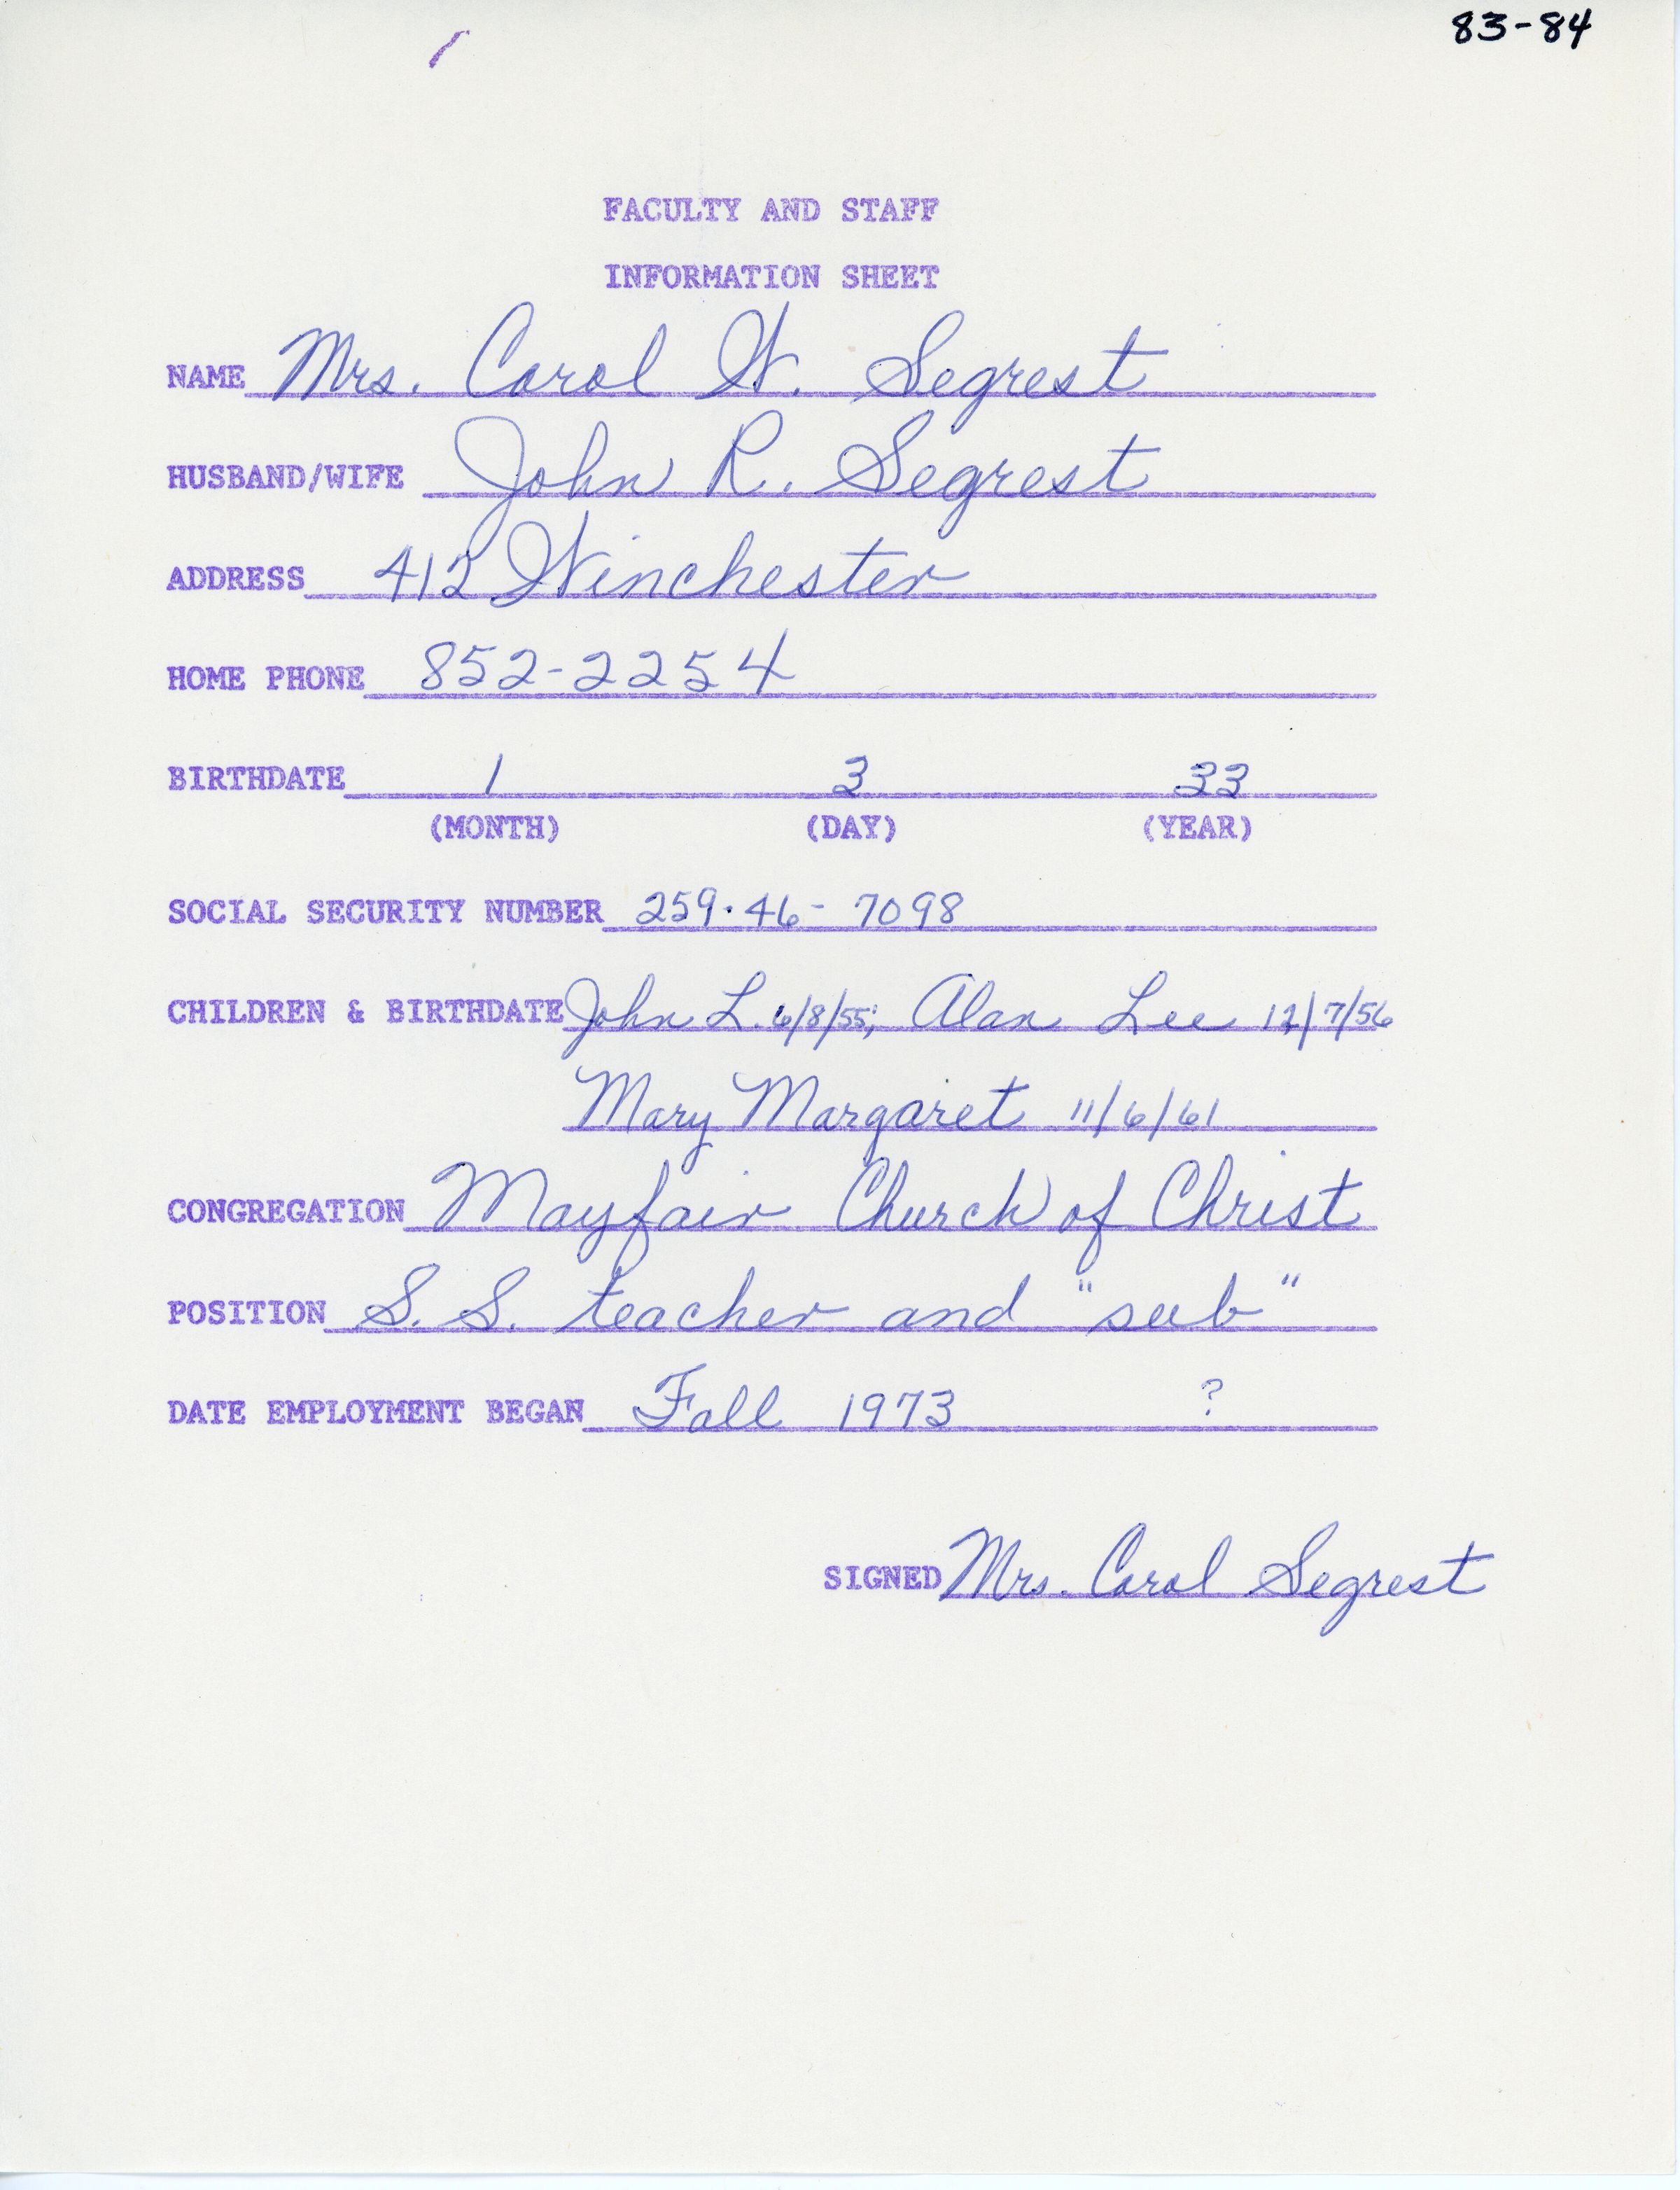 83-84
FACULTY AND STAFF
INFORMATION SHEET
NAME Mrs. Carol W. Segrest
HUSBAND/WIFE John R. Segrest
ADDRESS 412 Winchester
HOME PHONE 852-2254
BIRTHDATE 1 3 33
(MONTH) (DAY) (YEAR)
SOCIAL SECURITY NUMBER 259-46-7098
CHILDREN & BIRTHDATE John L. 6/8/55; Alan Lee 12/7/56
Mary Margaret 11/6/61
CONGREGATION Mayfair Church of Christ
POSITION S. S. teacher and "sub"
DATE EMPLOYMENT BEGAN Fall 1973 ?
SIGNED Mrs. Carol Segrest